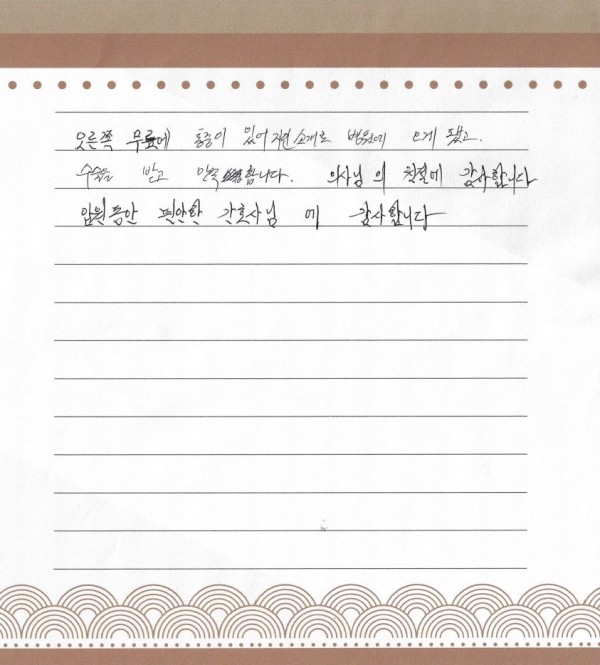 웃른쪽 무릎에 통증이 있어 지인 소개로 병원에 오게 됐고.
수술을 받고 만족 합니다. 의사님의 친절에 감사합니다
입원동안 편안한 간호사님에 감사합니다